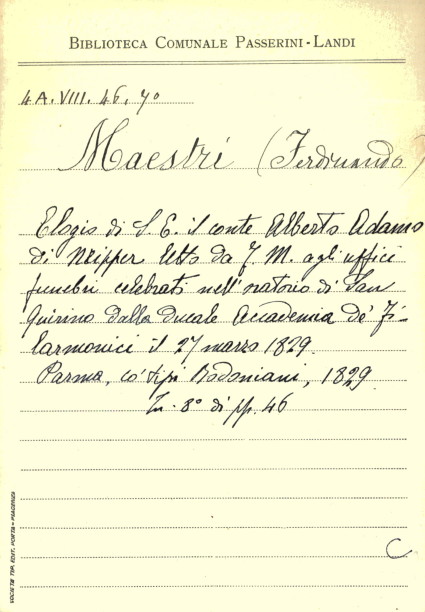 BIBLIOTECA COMUNALE PASSERINI-LANDI
4A.VIII.46, 7º
Maestri (Ferdinando)
Elogio di S. E. il conte Alberto Adamo
di Neipper letto da F. M. agli uffici
funebri celebrati nell'oratorio di San
Quirino dalla ducale Accademia de' Fi-
larmonici il 27 marzo 1829.
Parma, co' tipi Bodoniani, 1829
In-8º di pp. 46
C
SOCIETÀ TIP. EDIT. PORTA-PIACENZA